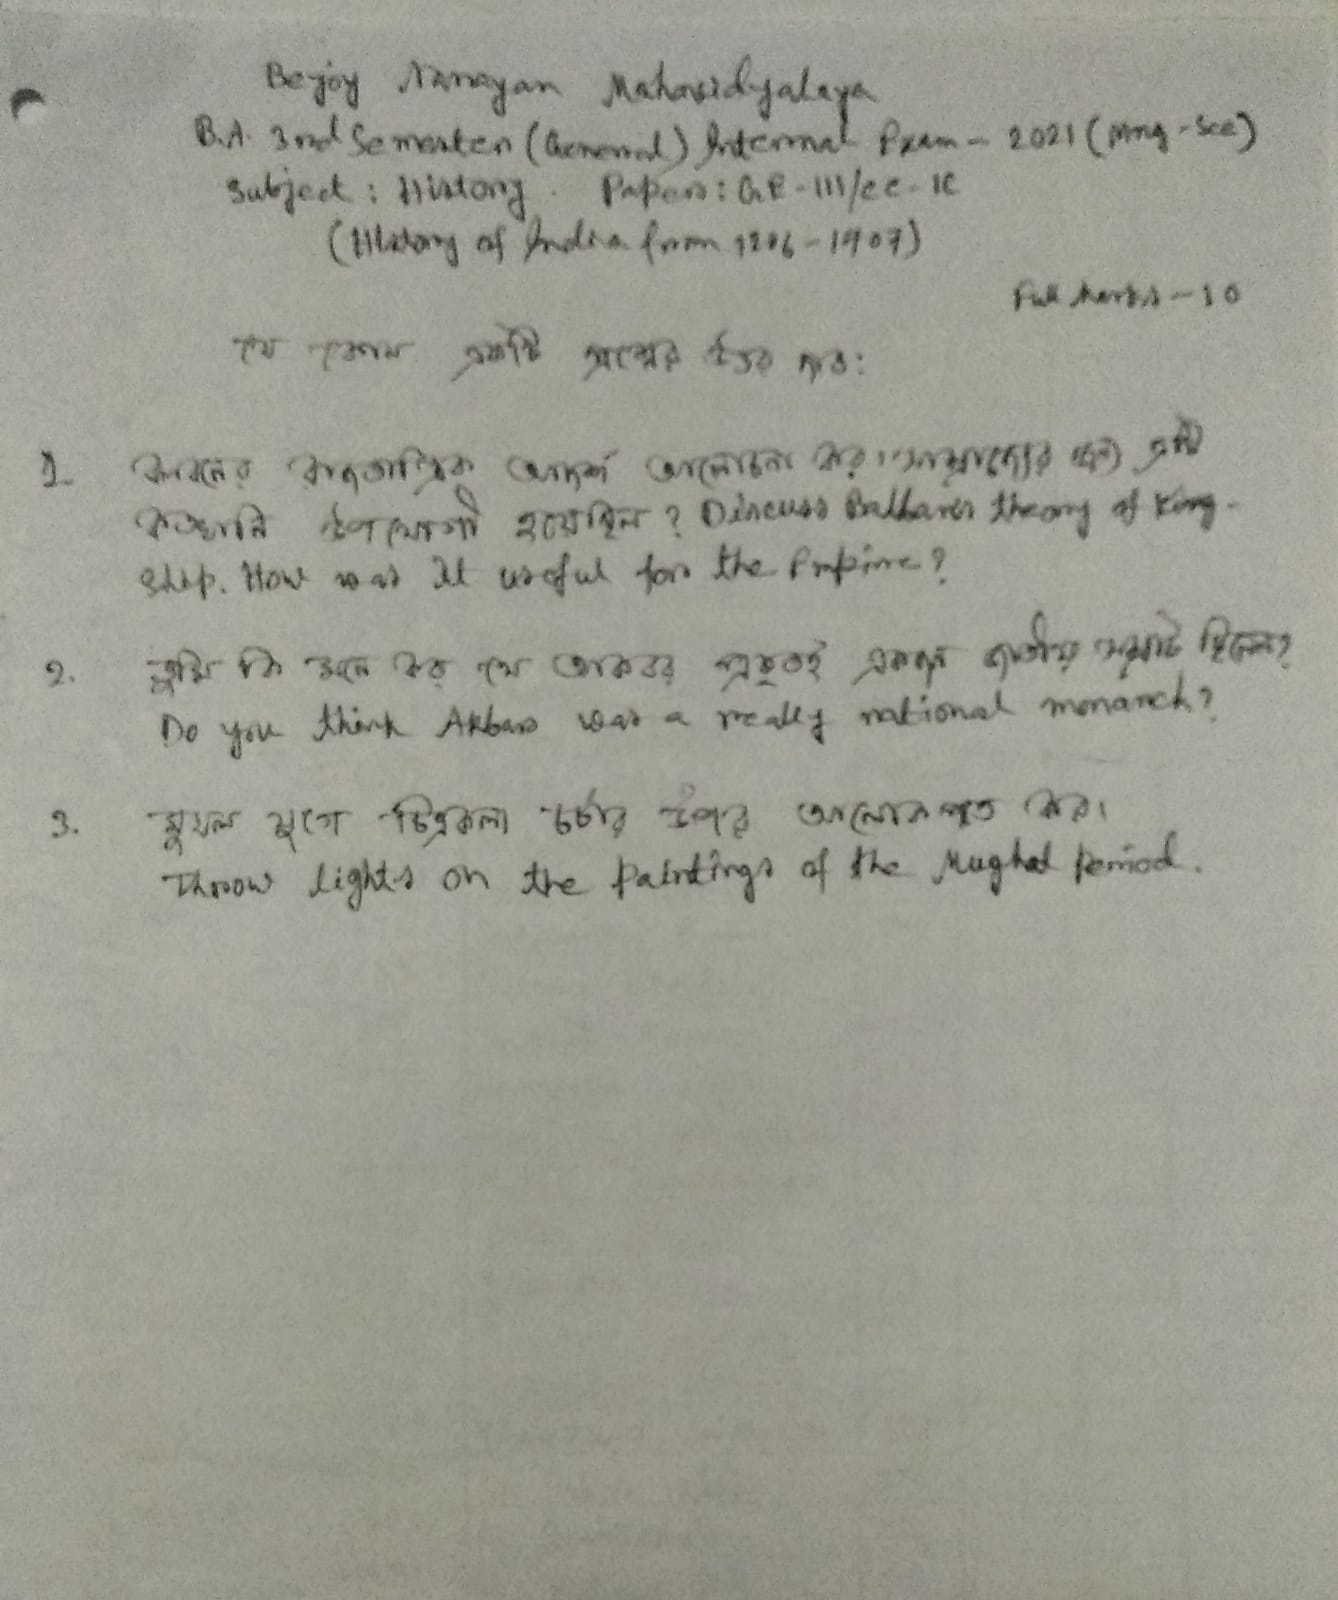 Bejoy Narayan Mahavidyalaya
B.A. 3rd Semester (General) Internal Exam - 2021 (Mng-Sec)
Subject : History. Paper : GE-III/CC-1C
(History of India from 1206-1707)
Full Marks - 10
যে কোন একটি প্রশ্নের উত্তর দাও :
1. বলবনের রাজতান্ত্রিক আদর্শ আলোচনা কর। সাম্রাজ্যের জন্য এটি
কতখানি উপযোগী হয়েছিল ? Discuss Balban's theory of King-
ship. How was it useful for the Empire ?
2. তুমি কি মনে কর যে আকবর প্রকৃতই একজন জাতীয় সম্রাট ছিলেন ?
Do you think Akbar was a really national monarch ?
3. মুঘল যুগে চিত্রকলা চর্চার উপর আলোকপাত কর।
Throw lights on the Paintings of the Mughal Period.